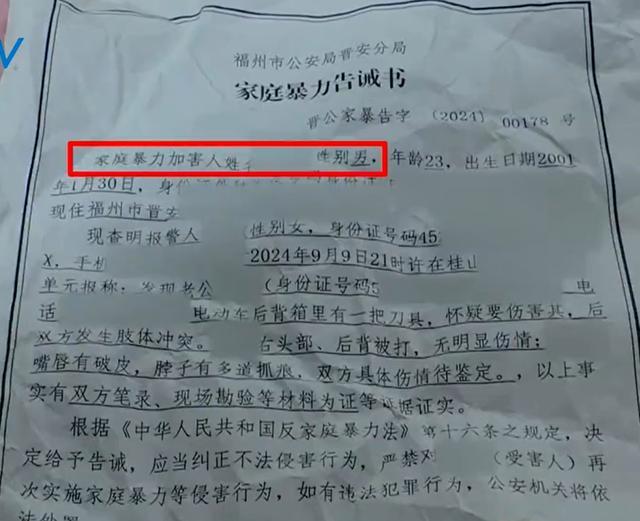 V
福州市公安局晋安分局
家庭暴力告诫书
晋公家暴告字 〔2024〕 00178 号
家庭暴力加害人姓 性别男，年龄23，出生日期2001
年1月30日，
现住福州市晋安
现查明报警人 性别女，身份证号码45
X，手机 2024年9月9日21时许在桂山
单元报称：发现老公 （身份证号码 电
话 电动车后背箱里有一把刀具，怀疑要伤害其，后
双方发生肢体冲突。 右头部、后背被打，无明显伤情；
嘴唇有破皮，脖子有多道抓痕，双方具体伤情待鉴定。，以上事
实有双方笔录、现场勘验等材料为证等证据证实。
根据《中华人民共和国反家庭暴力法》第十六条之规定，决
定给予告诫，应当纠正不法侵害行为，严禁对 （受害人）再
次实施家庭暴力等侵害行为，如有违法犯罪行为，公安机关将依